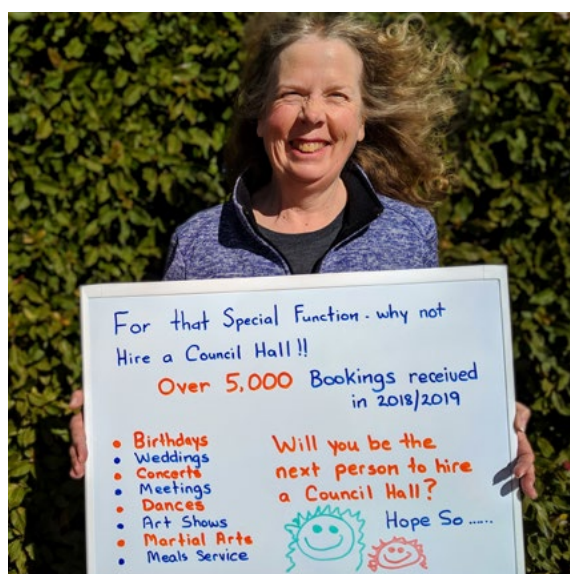 For that Special Function - why not
Hire a Council Hall!!
Over 5,000 Bookings received
in 2018/2019
• Birthdays
• Weddings
• Concerts
• Meetings
• Dances
• Art Shows
• Martial Arts
• Meals Service
Will you be the
next person to hire
a Council Hall?
Hope So ......